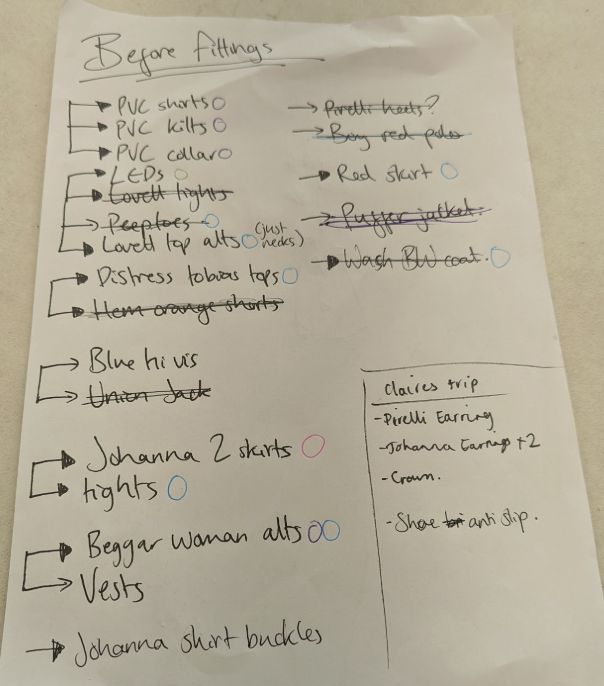 Before fittings
PVC shorts
PVC kilts
PVC collar
LEDs
Lovett tights
Peeptoes
Lovett top alts (just necks)
Distress tobias tops
Hem orange shorts
Blue hi vis
Union Jack
Johanna 2 skirts
tights
Beggar woman alts
Vests
Johanna shirt buckles
Pirelli heels?
Boy red polo
Red skirt
Puffer jacket.
Wash BW coat.
Claires trip
-Pirelli Earring
-Johanna Earrings +2
-Crown.
-Shoe anti slip.